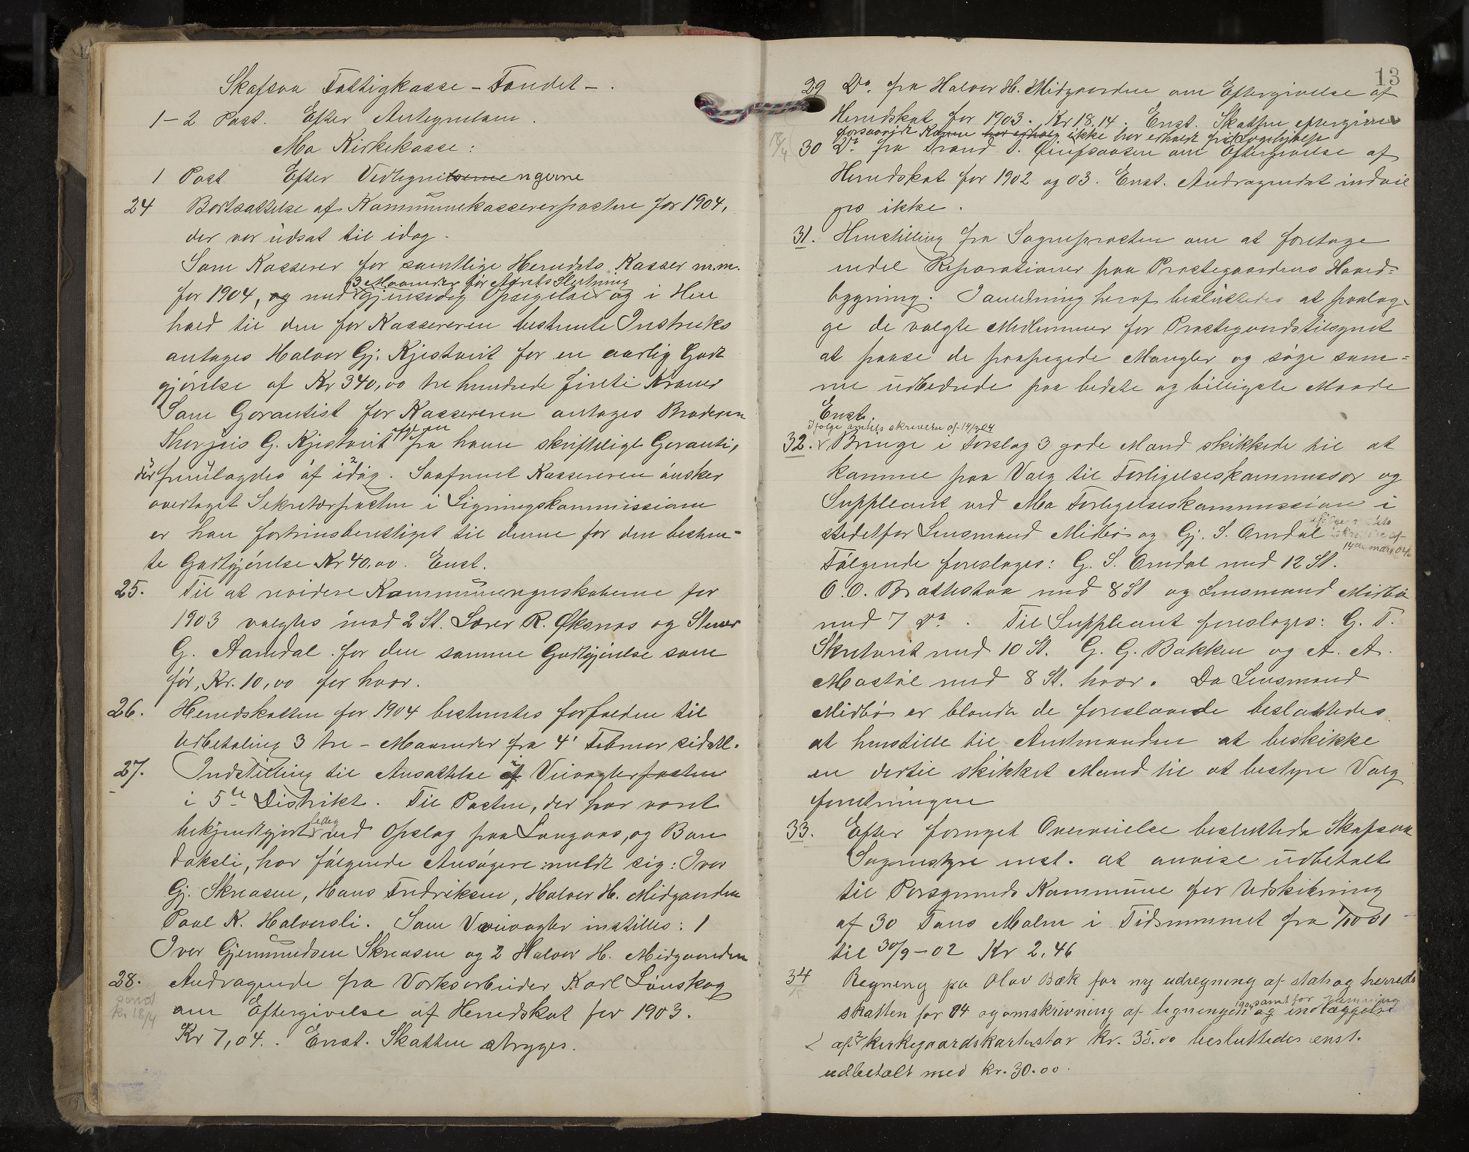 Skafsaa Fattigkasse - Fondet -.
1-2 Post. Efter Antegnelsen.
Mo Kirkekasse:
1 Post Efter Vedtegningerne
24 Bortsættelse af Kommunekassererposten for 1904,
der var udsat til idag.
Som Kasserer for samtlige Herredets Kasser m.m.
3 Maaneder før Aarets Slutning
for 1904, og med gjensidig Opsigelse og i Hen
hold til den for Kassereren bestemte Instruks
antages Halvor Gj. Kjestveit for en aarlig Godt
gjørelse af Kr 340,00 tre hundrede firti Kroner
Som Garantist for Kassereren antages Broderen
Thorjuis G. Kjestveit fra ham skriftligt Garanti,
der fremlagdes af idag. Saafremt Kassereren ønsker
overtaget Sekretærposten i Ligningskommissionen
er han fortrinsberettiget til denne for den bestem-
te Godtgjørelse Kr 40,00. Enst.
25. Til at revidere Kommuneregnskaberne for
1903 valgtes mod 2 St. Lærer R. Øksnes og Stener
G. Aamdal for den samme Godtgjørelse som
før, Kr. 10,00 for hver.
26. Herredskatten for 1904 bestemtes forfalden til
Udbetaling 3 tre - Maaneder fra 4' Februar sidstl.
27. Indstilling til Ansættelse af Veivogterposten
i 5te Distrikt. Til Posten, der har været
bekjendtgjort ledig ved Opslag paa Langaas, og Ban
daksli, har følgende Ansøgere meldt sig: Iver
Gj. Skreosen, Hans Fredriksen, Halvor H. Midgaarden
Paal K. Halvorsli. Som Veivogter instilles: 1
Iver Gjermundsen Skreosen og 2 Halvor H. Midgaarden
28. Andragende fra Værksarbeider Karl Lønskog
om Eftergivelse af Herredskat for 1903.
Kr 7,04. Enst. Skatten stryges.
13
29 Do. fra Halvor H. Midgaarden om Eftergivelse af
Herredskat for 1903. Kr 18,14. Enst. Skatten eftergives
forsaavidt Konen ikke har erholdt
30 Do fra Trond om Eftergivelse af
Herredskat for 1902 og 03. Enst. Andragendet indvil
ges ikke.
31. Henstilling fra Sognepresten om at foretage
endel Reparationer paa Prestegaardens Hoved-
bygning. I anledning heraf besluttedes at paalæg-
ge de valgte Medlemmer for Prestegaardstilsynet
at paase de paapegede Mangler og søge sam-
me udbedrede paa bedste og billigste Maade
Enst.
Ifølge amtets skrivelse af 14/3 04
32. Bringe i Forslag 3 gode Mænd skikkede til at
komme paa Valg til Forligelseskommissær og
Suppleant ved Mo Forligelseskommission i
stedetfor Lensmand Midbø og Gj. S. Omdal
Følgende foresloges: G. S. Omdal med 12 St.
O. O. Brattestaa med 8 St og Lensmand Midbø
med 7 Do. Til Suppleant foresloges: G. T.
Skretveit med 10 St. G. G. Bakken og A. A.
Mostøl med 8 St. hver. Da Lensmand
Midbø er blandt de foreslaaede besluttedes
at henstille til Amtmanden at beskikke
en dertil skikket Mand til at bestyre Valg
forretningen
33. Efter fornyet Overveielse besluttede Skafsaa
Sognestyre enst. at anvise udbetalt
til Porsgrunds Kommune for Udskibning
af 30 Tons Malm i Tidsrummet fra 1/10 01
til 30/9-02 Kr 2,46
34 Regning fra Olav Bæk for ny udregning af stats og herreds
skatten for 04 og omskrivning af ligningen samt for og indlæggelse
af 2 kirkegaardskarter stor kr. 35.00 besluttedes enst.
udbetalt med kr. 30.00.